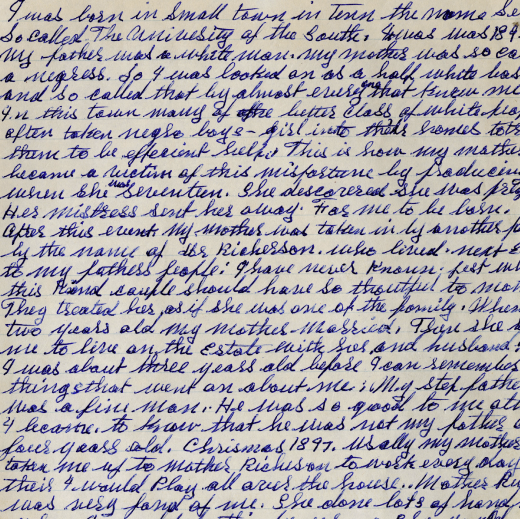 I was born in small town in tenn the name Se
So called The Univesity of the South. I was was 189
My father was a white man. my mother was so ca
a negress. So I was looked on as a half white bas
and so called that by almost every one that knew me
In this town many of the better class of white peo
often taken negro boys – girl into their homes to tra
them to be effecient help. This is how my mother
became a victim of this misfortune by producin
when she was seventeen. She descovered she was preg
Her mistress sent her away. For me to be born.
After this event my mother was taken in by another fa
by the name of Dr Richerson. who lived. next
to my fathers people. I have never known. just w
this kind couple should have so thoutful to mo
They treated her, as if she was one of the family. When
two years old my mother married. Then she
me to live on the Estate with her and husband.
I was about three years old before I can remember
things that went on about me. My step fathe
was a fine man. He was so good to me
I became. to know that he was not my father
four years old. Chrismas 1897. Usally my mother
taken me up to mother Richerson to work every day
their I would Play all over the house. Mother Ri
was very fond of me. She done lots of hand